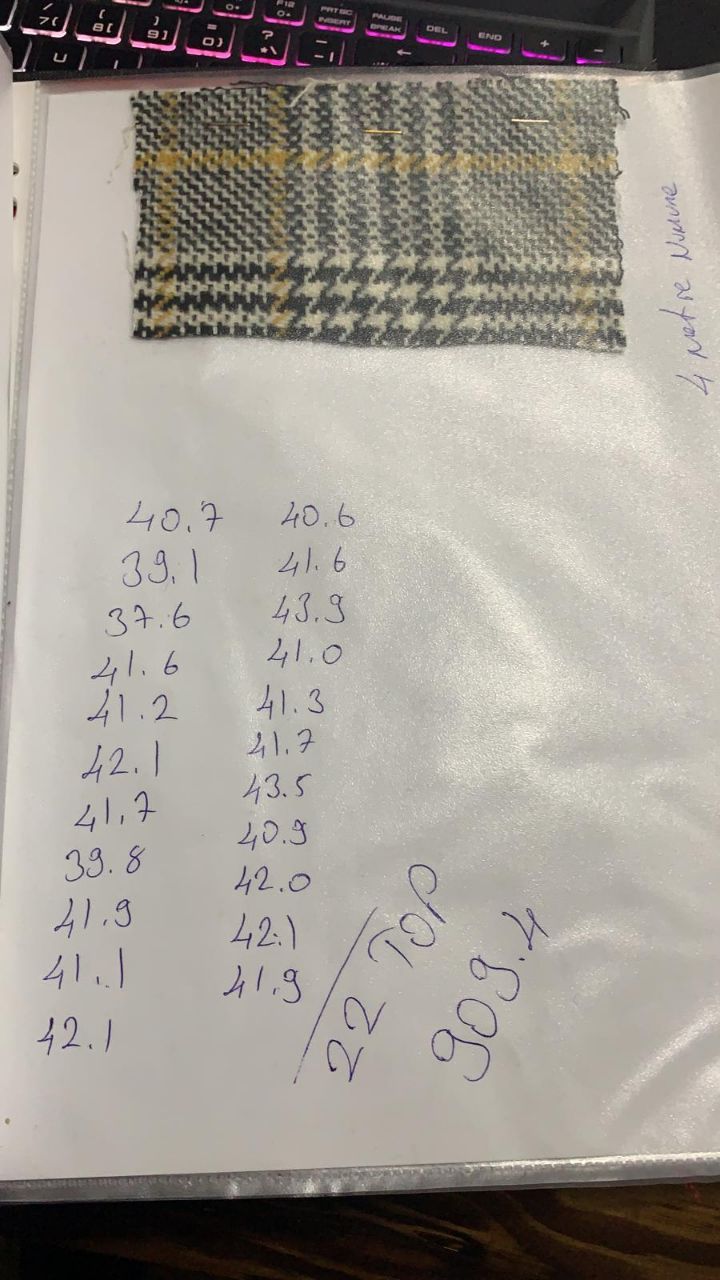 PRTSC
INSERT
PAUSE
BREAK
DEL
END
4 metre Numune
40.7 40.6
39.1 41.6
37.6 43.9
41.6 41.0
41.2 41.3
42.1 41.7
41.7 43.5
39.8 40.9
41.9 42.0
41.1 42.1
42.1 41.9
22 TOP
909.4